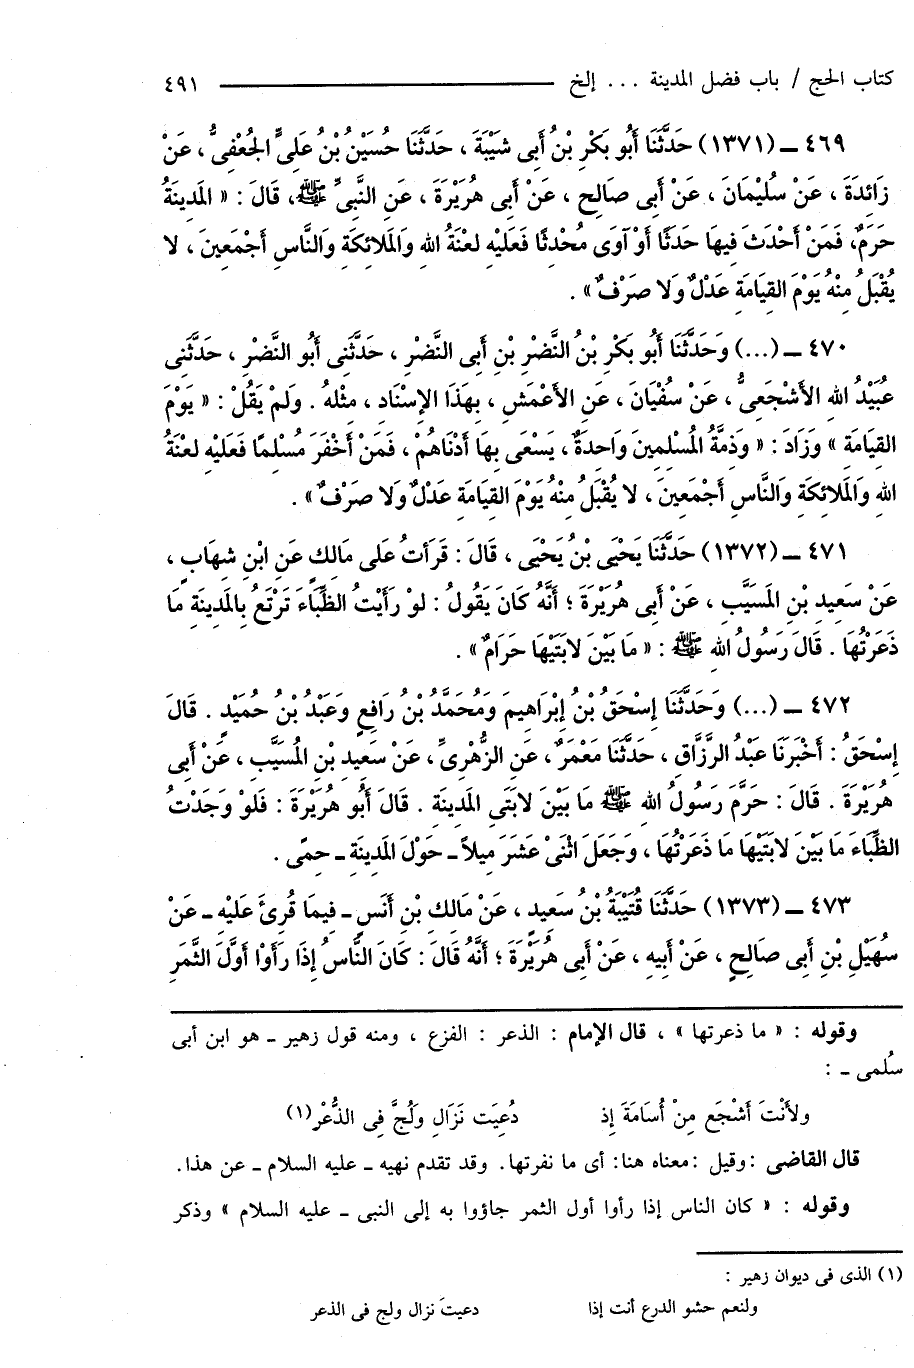 كتاب الحج / باب فضل المدينة ... إلخ ــــــــ ٤٩١
٤٦٩ ـ (١٣٧١) حَدَّثَنَا أَبُو بَكْرِ بْنُ أَبِى شَيْبَةَ ، حَدَّثَنَا حُسَيْنُ بْنُ عَلِىٍّ الجُعْفِىُّ ، عَنْ
زَائِدَةَ ، عَنْ سُلَيْمَانَ ، عَنْ أَبِى صَالِحٍ ، عَنْ أَبِى هُرَيْرَةَ ، عَنِ النَّبِىِّ ﷺ، قَالَ : « المَدِينَةُ
حَرَمٌ، فَمَنْ أَحْدَثَ فِيهَا حَدَثًا أَوْ آوَى مُحْدِثًا فَعَلَيْهِ لعْنَةُ اللهِ وَالمَلائِكَةِ وَالنَّاسِ أَجْمَعِينَ ، لا
يُقْبَلُ مِنْهُ يَوْمَ القِيَامَةِ عَدْلٌ وَلا صَرْفٌ» .
٤٧٠ ـ (...) وَحَدَّثَنَا أَبُو بَكْرِ بْنُ النَّضْرِ بْنِ أَبِى النَّضْرِ ، حَدَّثَنِى أَبُو النَّضْرِ ، حَدَّثَنِى
عُبَيْدُ اللهِ الأَشْجَعِىُّ ، عَنْ سُفْيَانَ ، عَنِ الأَعْمَشِ ، بِهَذَا الإِسْنَادِ ، مِثْلهُ . وَلَمْ يَقُلْ : « يَوْمَ
القِيَامَةِ » وَزَادَ : « وَذِمَّةُ المُسْلِمِينَ وَاحِدَةٌ ، يَسْعَى بِهَا أَدْنَاهُمْ ، فَمَنْ أَخْفَرَ مُسْلِمًا فَعَلَيْهِ لعْنَةُ
اللهِ وَالمَلائِكَةِ وَالنَّاسِ أَجْمَعِينَ ، لا يُقْبَلُ مِنْهُ يَوْمَ القِيَامَةِ عَدْلٌ وَلا صَرْفٌ» .
٤٧١ ـ (١٣٧٢) حَدَّثَنَا يَحْيَى بْنُ يَحْيَى ، قَالَ : قَرَأتُ عَلى مَالِكٍ عَنِ ابْنِ شِهَابٍ ،
عَنْ سَعِيدِ بْنِ المُسَيَّبِ ، عَنْ أَبِى هُرَيْرَةَ ؛ أَنَّهُ كَانَ يَقُولُ : لوْ رَأَيْتُ الظِّبَاءَ تَرْتَعُ بِالمَدِينَةِ مَا
ذَعَرْتُهَا . قَالَ رَسُولُ اللهِ ﷺ : « مَا بَيْنَ لابَتَيْهَا حَرَامٌ» .
٤٧٢ ـ (...) وَحَدَّثَنَا إِسْحَقُ بْنُ إِبْرَاهِيمَ وَمُحَمَّدُ بْنُ رَافِعٍ وَعَبْدُ بْنُ حُمَيْدٍ . قَالَ
إِسْحَقُ : أَخْبَرَنَا عَبْدُ الرَّزَّاقِ ، حَدَّثَنَا مَعْمَرٌ، عَنِ الزُّهْرِىِّ ، عَنْ سَعِيدِ بْنِ المُسَيَّبِ ، عَنْ أَبِى
هُرَيْرَةَ . قَالَ : حَرَّمَ رَسُولُ اللهِ ﷺ مَا بَيْنَ لابَتَى المَدِينَةِ . قَالَ أَبُو هُرَيْرَةَ : فَلوْ وَجَدْتُ
الظِّبَاءَ مَا بَيْنَ لابَتَيْهَا مَا ذَعَرْتُهَا ، وَجَعَلَ اثْنَىْ عَشَرَ مِيلاً ـ حَوْلَ المَدِينَةِ ـ حِمًى .
٤٧٣ ـ (١٣٧٣) حَدَّثَنَا قُتَيْبَةُ بْنُ سَعِيدٍ ، عَنْ مَالِكِ بْنِ أَنَسٍ ـ فِيمَا قُرِئَ عَليْهِ ـ عَنْ
سُهَيْلِ بْنِ أَبِى صَالِحٍ ، عَنْ أَبِيهِ ، عَنْ أَبِى هُرَيْرَةَ ؛ أَنَّهُ قَالَ : كَانَ النَّاسُ إِذَا رَأَوْا أَوَّلَ الثَّمَرِ
وقوله : « ما ذعرتها » ، قال الإمام : الذعر : الفزع ، ومنه قول زهير ـ هو ابن أبى
سُلمى ـ :
ولأنْتَ أشْجَع مِنْ أُسَامَةَ إذ دُعِيَت نَزَالِ ولَجَّ فِى الذُّعْرِ(١)
قال القاضى :وقيل :معناه هنا: أى ما نفرتها. وقد تقدم نهيه ـ عليه السلام ـ عن هذا.
وقوله : « كان الناس إذا رأوا أول الثمر جاؤوا به إلى النبى ـ عليه السلام » وذكر
(١) الذى فى ديوان زهير :
ولنعم حشو الدرع أنت إذا دعيتَ نزال ولج فى الذعر